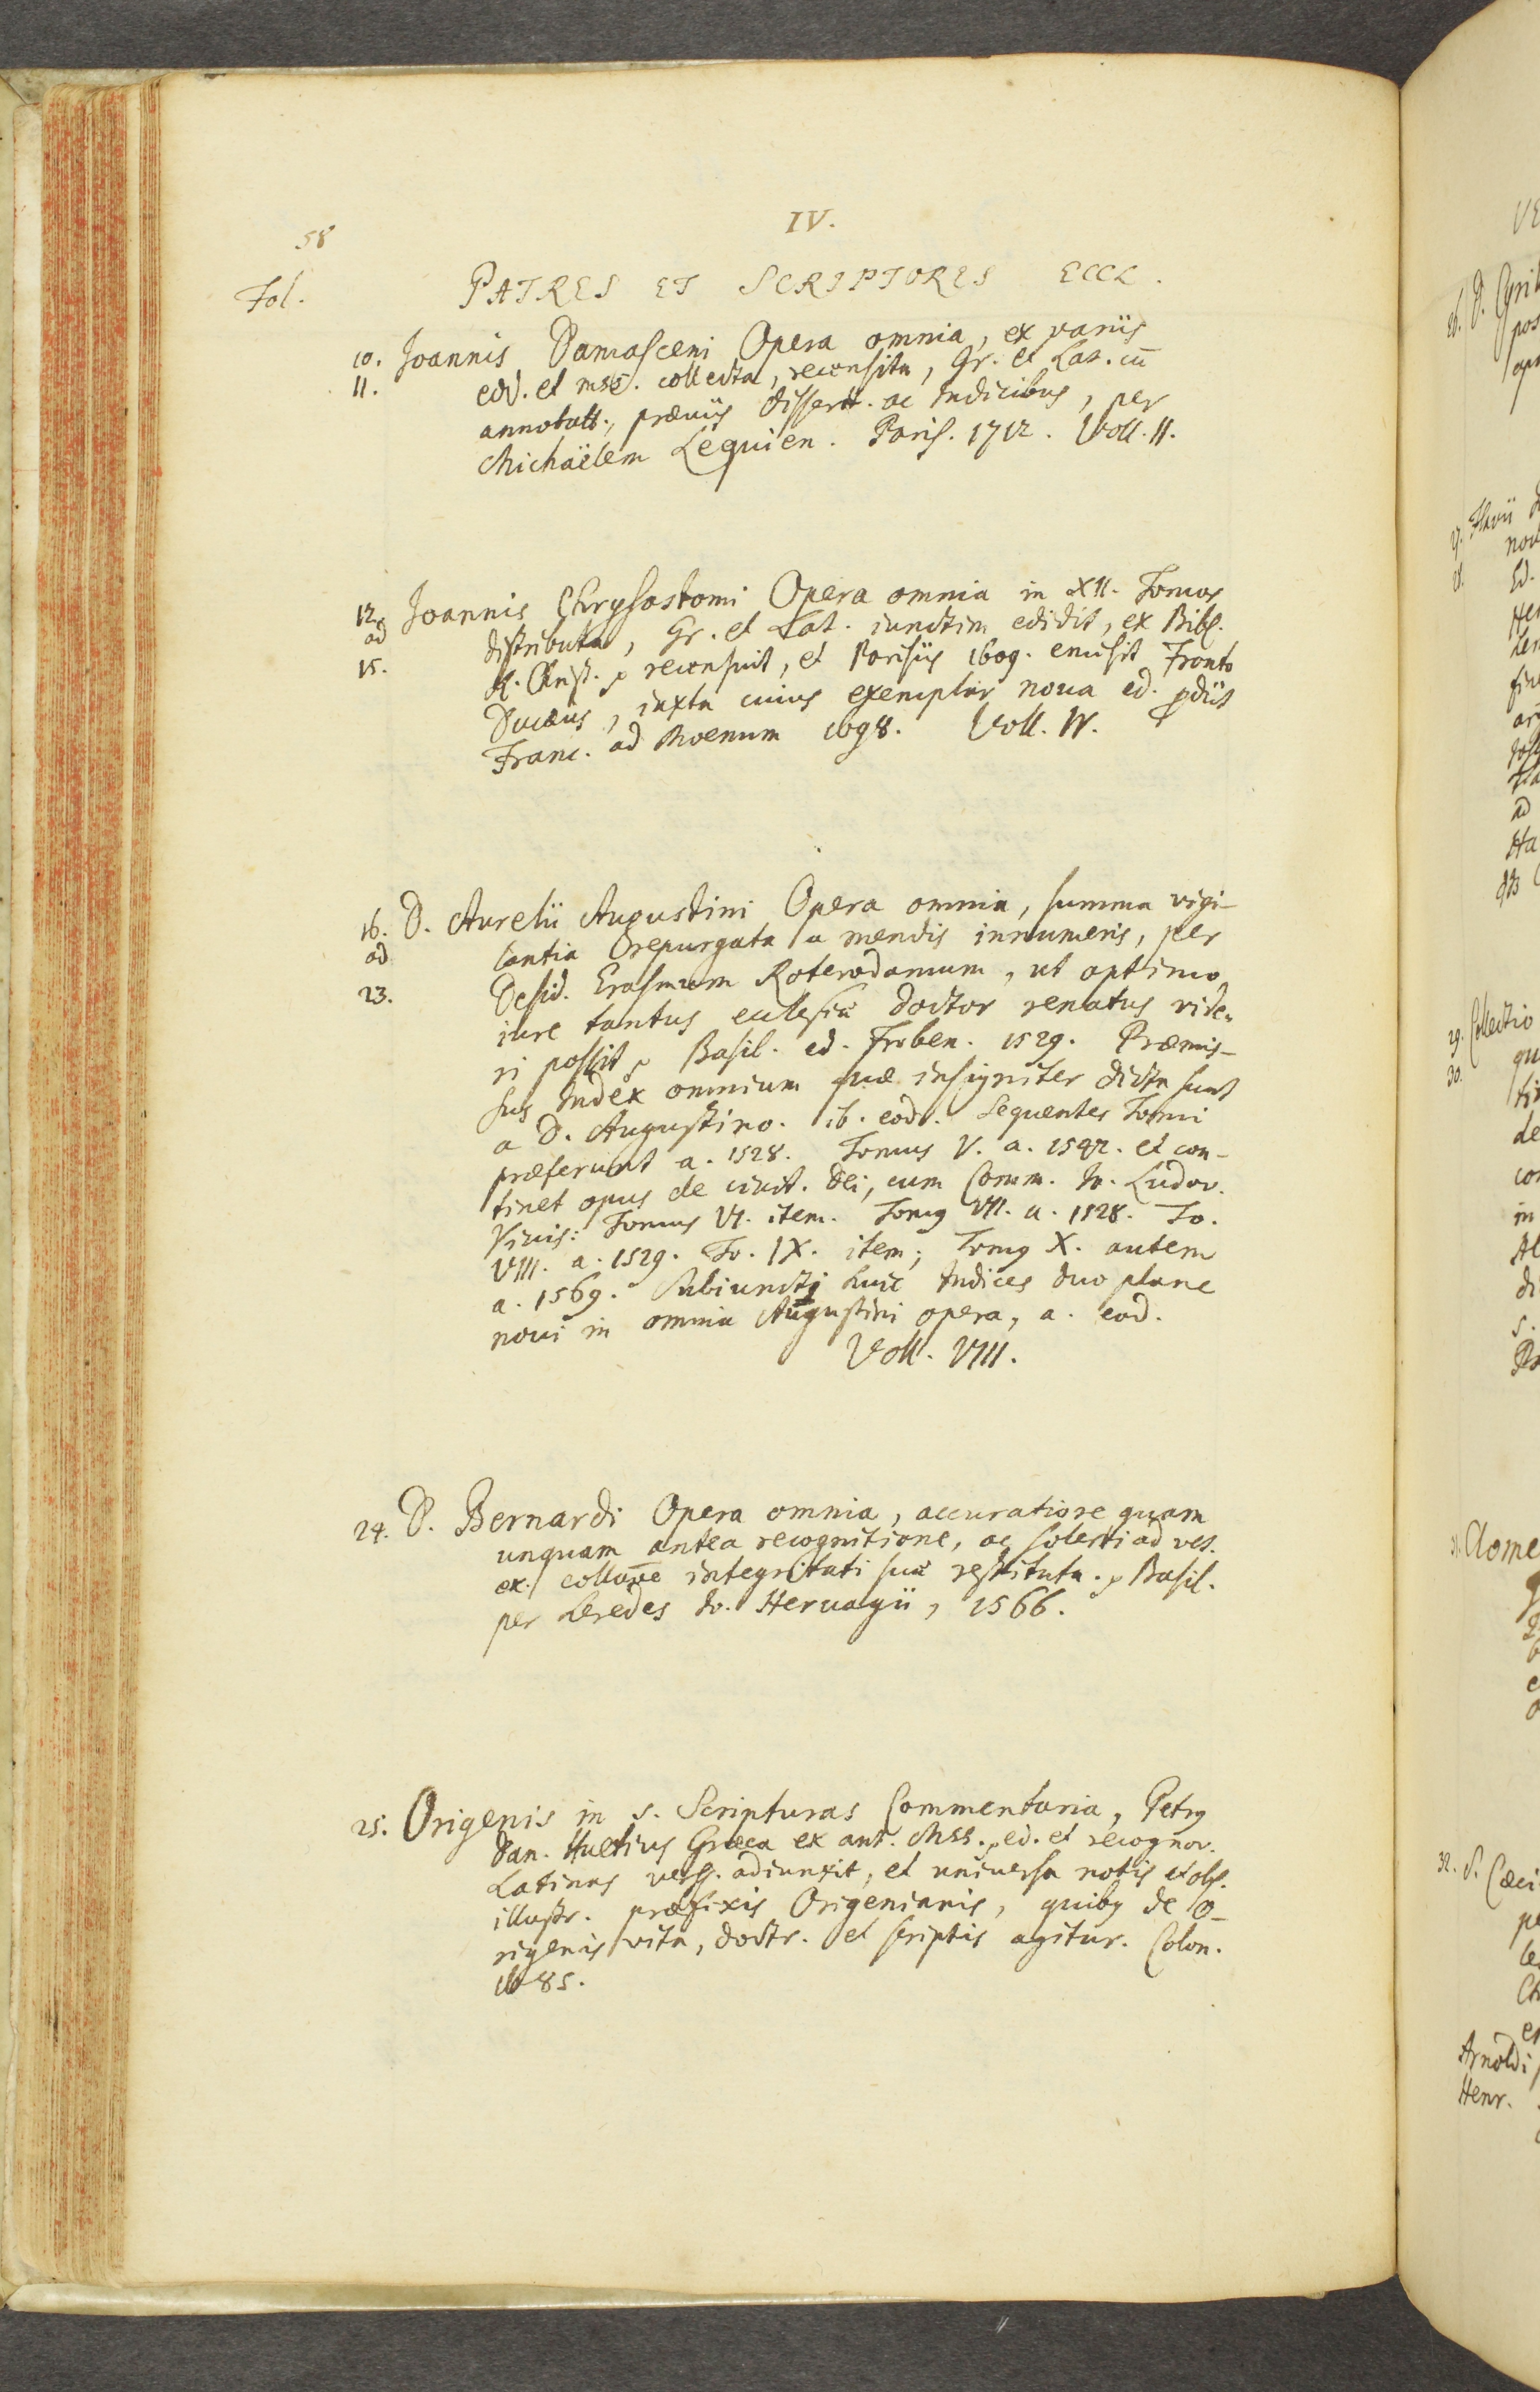 58
IV.
Fol.
PATRES ET SCRIPTORES ECCL.
10. Joannis Damasceni Opera omnia, ex variis
11. edd. et mss. collecta, recensita, Gr. et Lat. cū
annotatt., præviis dissertt. ac Indicibus, per
Michaëlem Lequien. Paris. 1712. Voll. II.
12. Joannis Chrysostomi Opera omnia in XII. Tomos
ad distributa, Gr. et Lat. iunctim edidit, ex Bibl.
15. R. Christ. recensuit, et Parisiis 1609. emisit Fronto
Ducæus, iuxta cuius exemplar nova ed. prodiit
Franc. ad Moenum 1698. Voll. IV.
16. D. Aurelii Augustini Opera omnia, summa vigi-
ad lantia repurgata a mendis innumeris, per
23. Desid. Erasmum Roterodamum, ut optimo
iure tantus ecclesiæ doctor renatus vide-
ri possit, Basil. ed. Froben. 1529. Præmis-
sus Index omnium quæ insigniter dicta sunt
a D. Augustino. ib. eod. Sequentes Tomi
præferunt a. 1528. Tomus V. a. 1542. et con-
tinet opus de civit. Dei, cum Comm. Jo. Ludov.
Vivis: Tomus VI. item. Tomus VII. a. 1528. To.
VIII. a. 1529. To. IX. item; Tomus X. autem
a. 1569. Subiuncti huic Indices duo plane
novi in omnia Augustini opera, a. eod.
Voll. VIII.
24. D. Bernardi Opera omnia, accuratiore quam
unquam antea recognitione, ac solerti ad vet.
ex. collatione integritati suæ restituta. Basil.
per heredes Jo. Hervagii, 1566.
25. Origenis in S. Scripturas Commentaria, Petrus
Dan. Huetius Græca ex ant. Mss. ed. et recognov.
Latinas verss. adiunxit, et universa notis et obs.
illustr. præfixis Origenianis, quibus de O-
rigenis vita, doctr. et scriptis agitur. Colon.
1685.